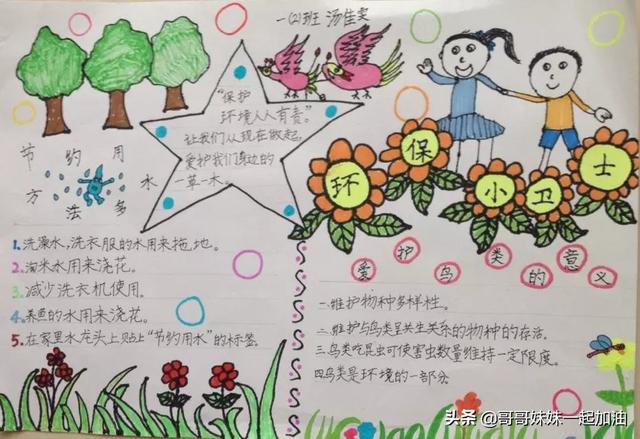 一(2)班 汤佳雯
"保护
环境人人有责。"
让我们从现在做起,
爱护我们身边的
一草一木。
环保小卫士
节约用水
方法多
1.洗澡水,洗衣服的水用来拖地。
2.淘米水用来浇花。
3.减少洗衣机使用。
4.养鱼的水用来浇花。
5.在家里水龙头上贴上"节约用水"的标签
爱护鸟类的意义
一.维护物种多样性。
二.维护与鸟类呈共生关系的物种的存活。
三.鸟类吃昆虫可使害虫数量维持一定限度。
四.鸟类是环境的一部分
头条 @哥哥妹妹一起加油